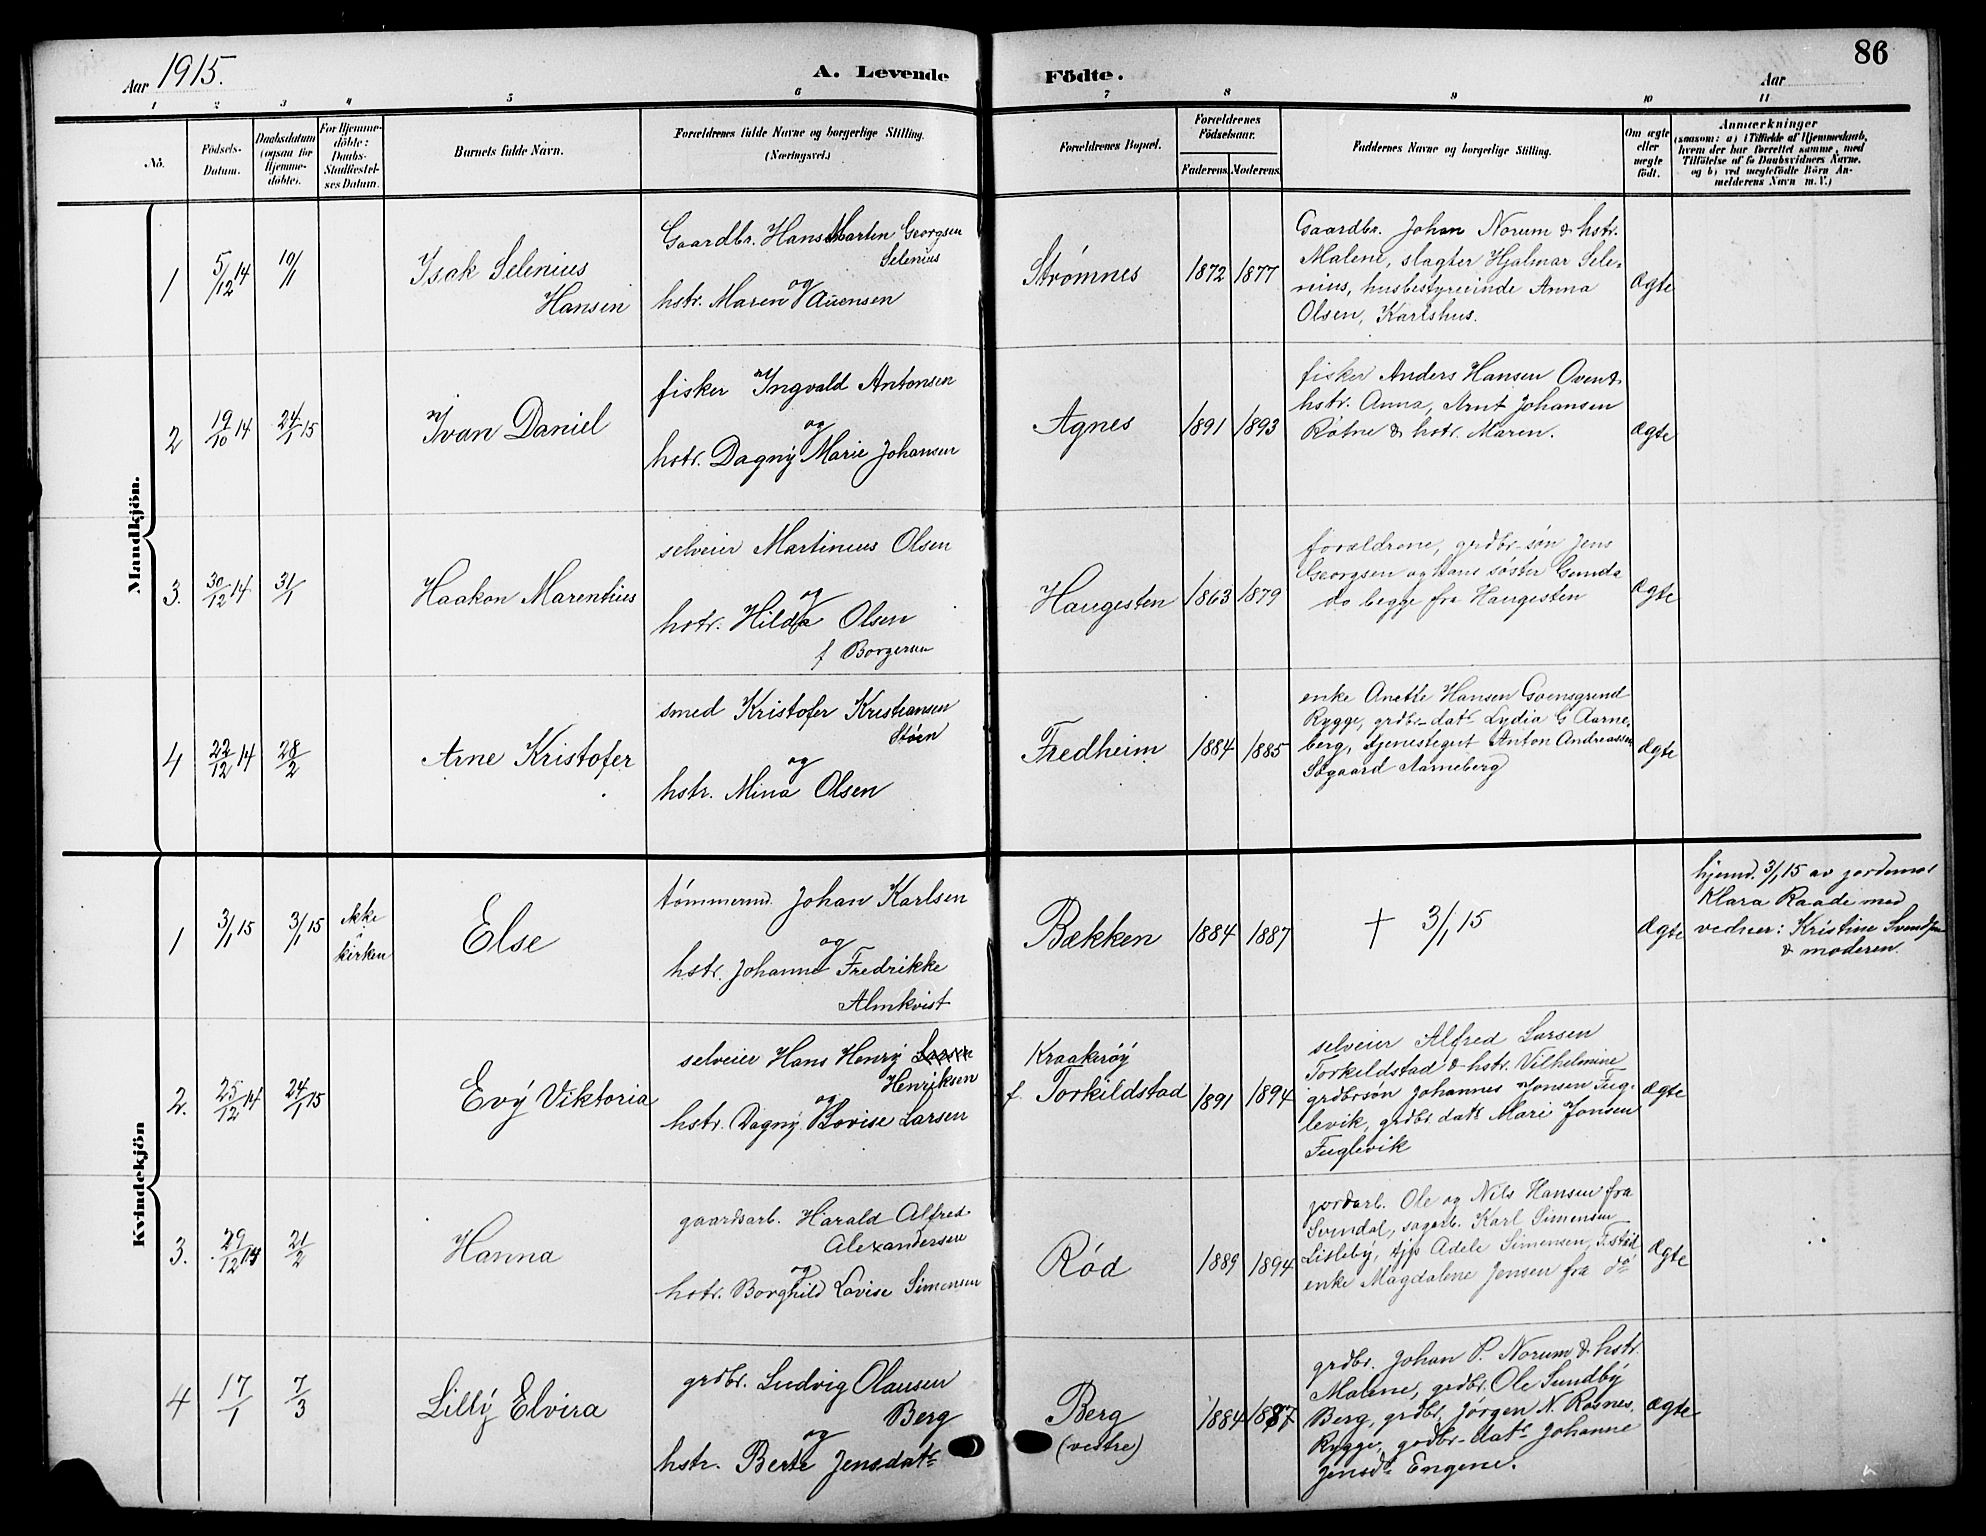 Aar 1915.
A. Levende Födte.
Aar
86
1 2 3 4 5 6 7 8 9 10 11
No.
Födsels-
Datum.
Daabsdatum
(ogsaa för
Hjemme-
döbte).
For Hjemme-
döbte:
Daabs-
Stadfæstel-
ses Datum.
Barnets fulde Navn.
Forældrenes fulde Navne og borgerlige Stilling.
(Næringsvei.)
Forældrenes Bopæl.
Forældrenes
Födselsaar.
Faderens. Moderens.
Faddernes Navne og borgerlige Stilling.
Om ægte
eller
uægte
födt.
Anmærkninger
(saasom: a) i Tilfælde af Hjemmedaab,
hvem der har forrettet samme, med
Tilföielse af to Daabsvidners Navne.
og b) ved uægtefödte Börn An-
melderens Navn m.V.)
Mandkjön.
1
5/12 14
10/1
Isak Selenius
Hansen
Gaardbr. Hans Martin Georgsen
Selenius
og
hstr. Maren
Strømnes
1872 1877
Gaardbr. Johan Norum & hstr.
Malene, slagter Hjalmar Sele-
nius, husbestyrerinde Anna
Olsen, Karlshus.
Ægte
2
19/10 14
24/1 15
Ivan Daniel
fisker Ingvald Antonsen
og
hstr. Dagny Marie Johansen
Agnes
1891 1893
fisker Anders Hansen Oven &
hstr. Anna, Arnt Johansen
Røtne & hstr. Maren.
Ægte
3.
30/12 14
31/1
Haakon Marentius
selveier Martinius Olsen
og
hstr. Hilda Olsen
f Borgersen
Haugesten
1863 1879
forældrene, grdbr-søn Jens
Georgsen og hans søster Gunda
do begge fra Haugesten
Ægte
4
22/12 14
28/2
Arne Kristofer
smed Kristofer Kristiansen
Støen
og
hstr. Mina Olsen
Fredheim
1884 1885
enke Anette Hansen Goensgrind
Rygge, grdbr-datr Lydia G Aarne-
berg, tjenestegut Anton Andreassen
Søgaard Aarneberg
Ægte
Kvindekjön
1
3/1 15
3/1 15
ikke
i
kirken
Else
tømmermd. Johan Karlsen
og
hstr. Johanne Fredrikke
Almkvist
Bækken
1884 1887
† 3/1 15
Ægte
hjemd. 3/1 15 av jordemor
Klara Raade med
vidner: Kristine Svendsen
& moderen.
2.
25/12 14
24/1 15
Evy Viktoria
selveier Hans Henry Larsen
Henriksen
og
hstr. Dagny Lovise Larsen
Kraakerøy
f. Torkildstad
1891 1894
selveier Alfred Larsen
Torkildstad & hstr. Vilhelmine
grdbrsøn Johannes Jonsen Fug-
levik, grdbr datr Mari Jonsen
Fuglevik
Ægte
3.
29/12 14
21/2
Hanna
gaardsarb. Harald Alfred
Alexandersen
og
hstr. Borghild Lovise Simensen
Rød
1889 1894
jordarb. Ole og Nils Hansen fra
Svindal, sagarb. Karl Simensen
Lisleby, tjp Adele Simensen, F.stad
enke Magdalene Jensen fra do
Ægte
4
17/1
7/3
Lilly Elvira
grdbr. Ludvig Olausen
Berg
og
hstr. Berte Jensdatr
Berg
(vestre)
1884 1887
grdbr. Johan P. Norum & hstr.
Malene, grdbr. Ole Sundby
Berg, grdbr. Jørgen N. Rosnes,
Rygge, grdbr-datr Johanne
Jensdr Engene.
Ægte